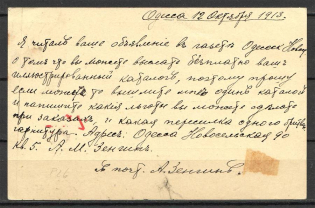 Одесса 12 Октября 1913.
Я читалъ ваше объявленіе въ газетѣ Одесск. Нов.
о томъ где вы можете выслать бѣсплатно вашъ
иллюстрированный каталогъ, поэтому прошу
если можете то вышлите мнѣ одинъ каталогъ
и напишите какія льготы вы можете сделать
при заказахъ и какая пересылка одного
гарнитура. Адресъ. Одесса Новосельская 90
кв 5. А. М. Зенгинъ.
А. Зенгинъ.